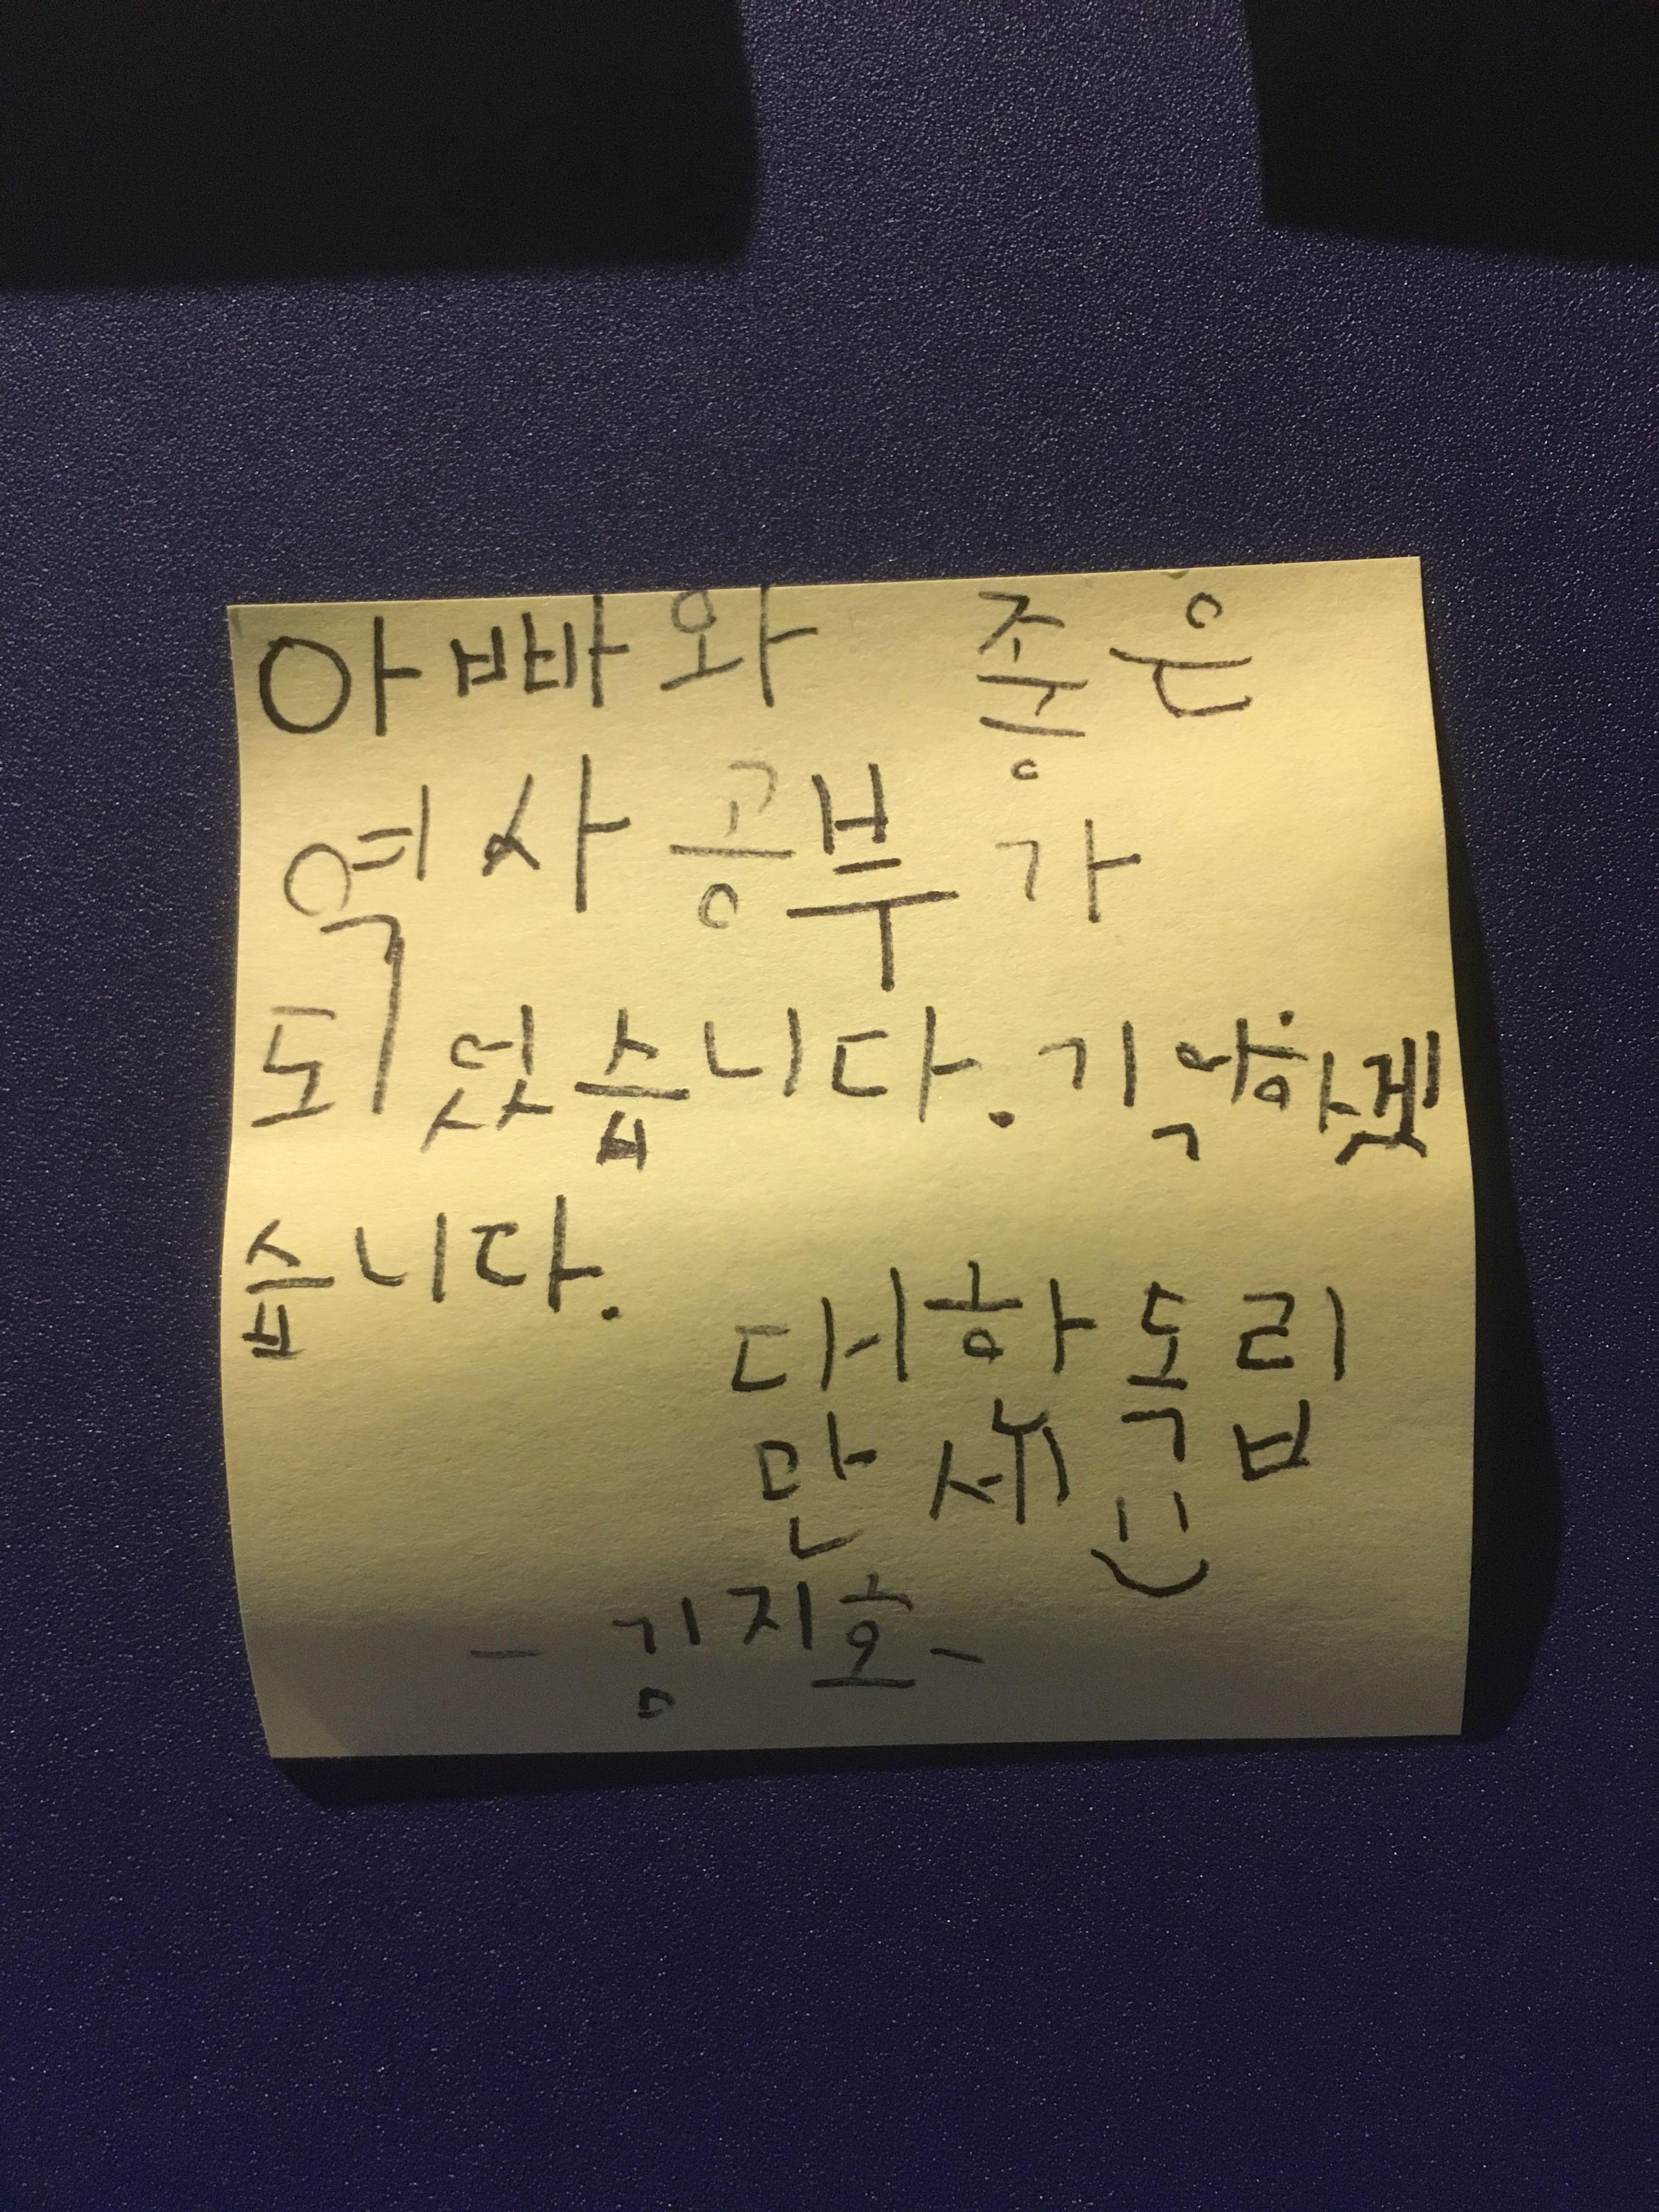 아빠와 좋은
역사공부가
되었습니다. 기억하겠
습니다.
대한독립
만세
-김지호-